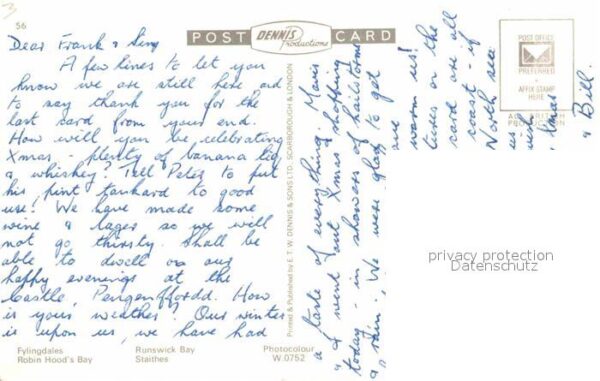 56
POST CARD
DENNIS
Productions
POST OFFICE
PREFERRED
AFFIX STAMP
HERE
ALL BRITISH
Dear Frank &
A few lines to let you
know we are still here and
to say thank you for the
last card from your end.
How will you be celebrating
Xmas, plenty of banana liq
& whiskey? Tell Peter to put
his pint tankard to good
use! We have made some
wine & lager so we will
not go thirsty. Shall be
able to dwell on our
happy evenings at the
Castle, Pengenffordd. How
is your weather? Our winter
is upon us, we have had
a taste of everything. Mavis
& I went out Xmas shopping
today - in showers of hailstones
& rain. We were glad to get
warm us!
lines or the
card are all
coast - if
North see
& Bill.
Printed & Published by E.T.W. DENNIS & SONS LTD. SCARBOROUGH & LONDON
privacy protection
Datenschutz
Fylingdales
Robin Hood's Bay
Runswick Bay
Staithes
Photocolour
W.0752